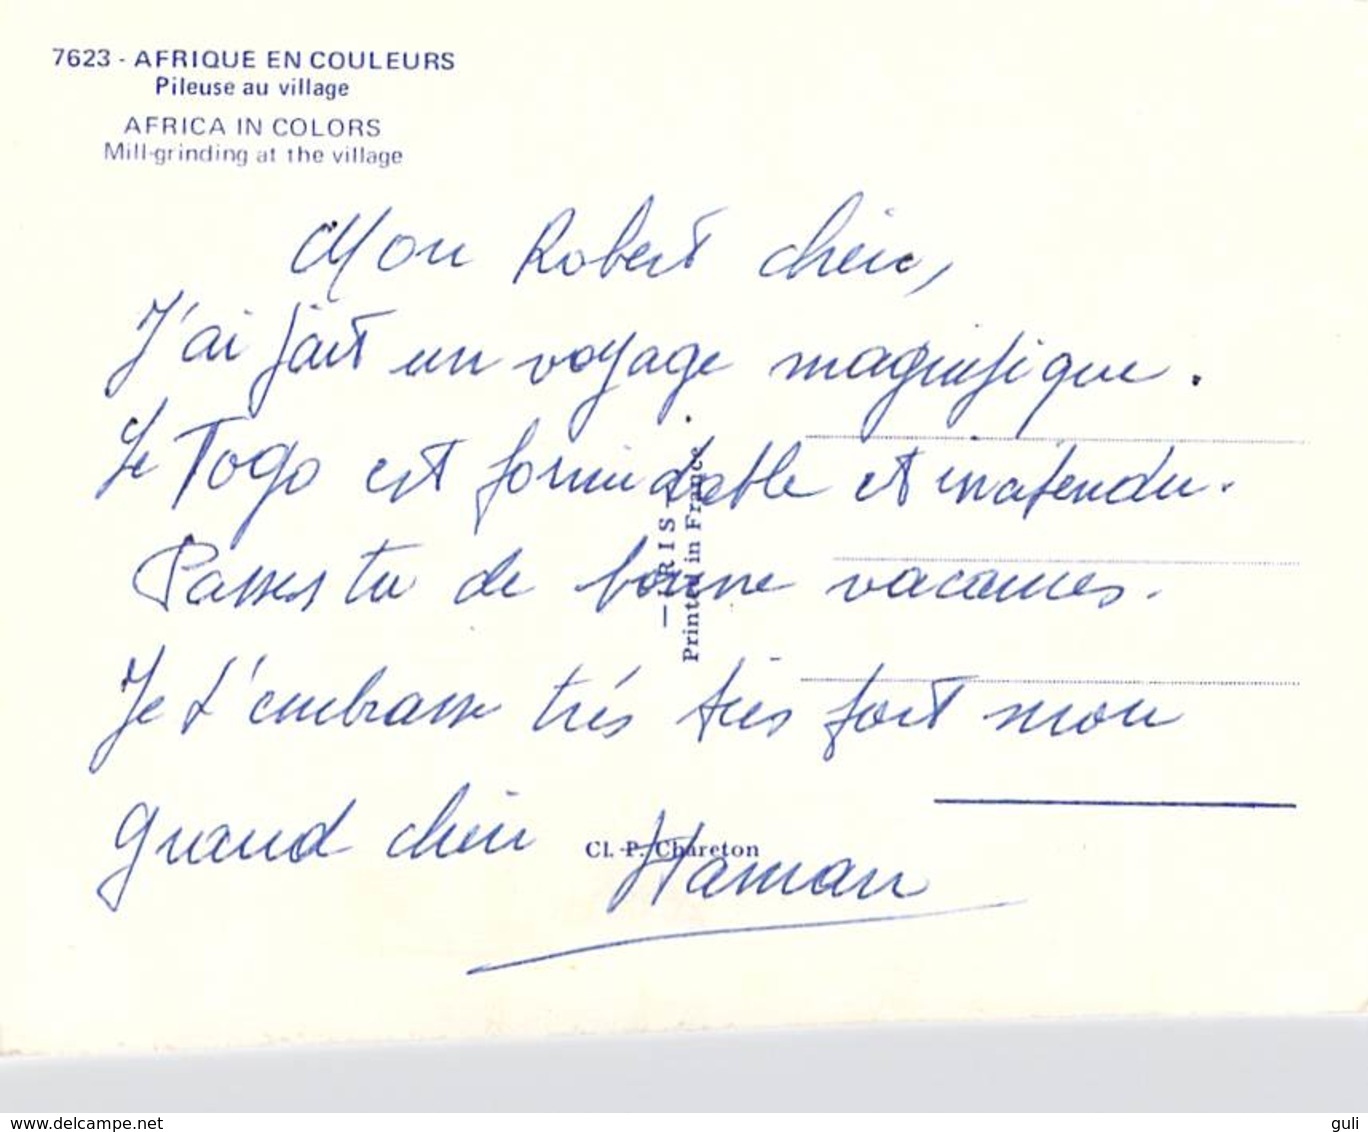 7623 - AFRIQUE EN COULEURS
Pileuse au village
AFRICA IN COLORS
Mill-grinding at the village
Mon Robert chéri,
J'ai fait un voyage magnifique.
Le Togo est formidable et inatendu.
Passes tu de bonne vacances.
Je t'embrasse très très fort mon
grand chéri Maman
— IRIS —
Printed in France
Cl. P. Chareton
www.delcampe.net
guli